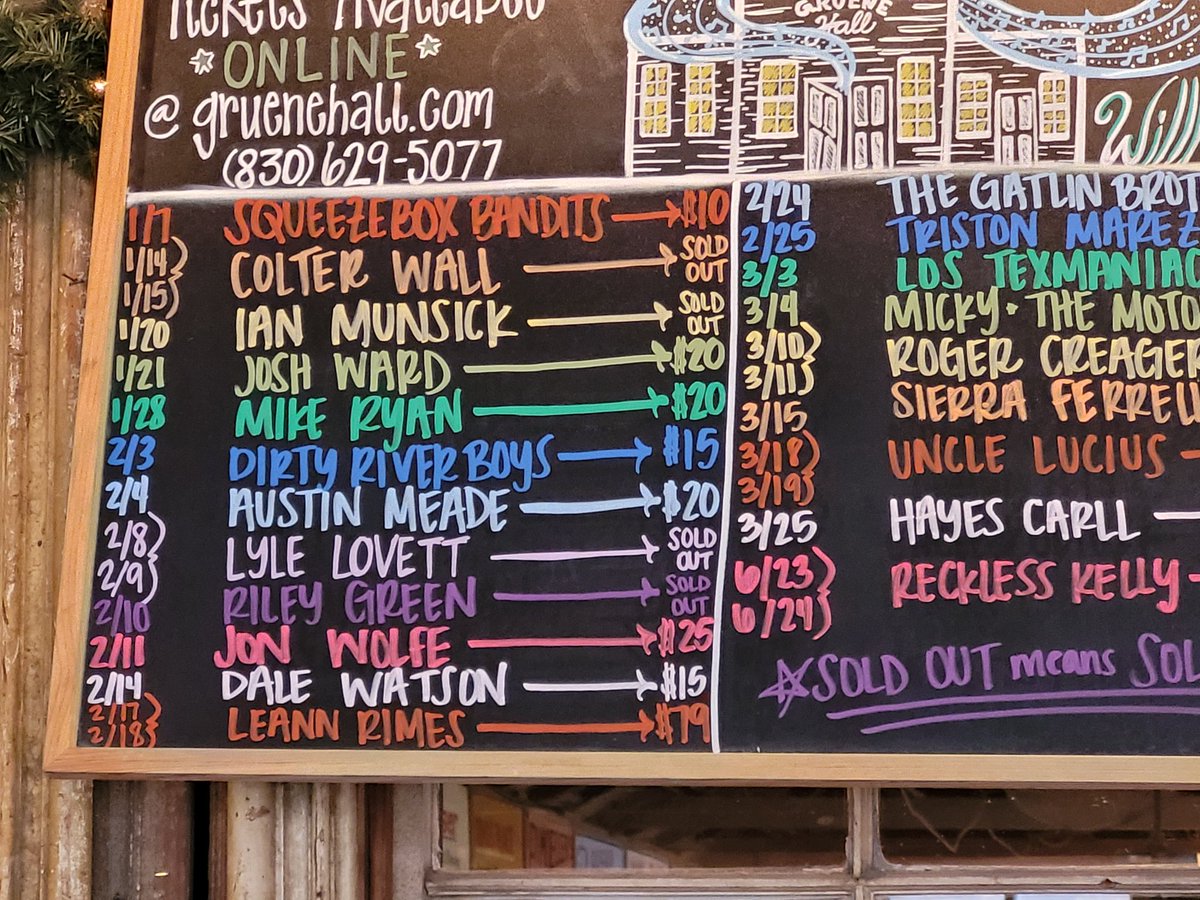 Tickets Available
ONLINE
@ gruenehall.com
(830) 629-5077
GRUENE
Hall
1/7 SQUEEZEBOX BANDITS $10
1/14 COLTER WALL SOLD OUT
1/15
1/20 IAN MUNSICK SOLD OUT
1/21 JOSH WARD $20
1/28 MIKE RYAN $20
2/3 DIRTY RIVER BOYS $15
2/4 AUSTIN MEADE $20
2/8 LYLE LOVETT SOLD OUT
2/9
2/10 RILEY GREEN SOLD OUT
2/11 JON WOLFE $25
2/14 DALE WATSON $15
2/17 LEANN RIMES $79
2/18
2/24 THE GATLIN BROT
2/25 TRISTON MAREZ
3/3 LOS TEXMANIAC
3/4 MICKY · THE MOTO
3/10 ROGER CREAGER
3/11
3/15 SIERRA FERRELL
3/18 UNCLE LUCIUS
3/19
3/25 HAYES CARLL
6/23 RECKLESS KELLY
6/24
SOLD OUT means SOL